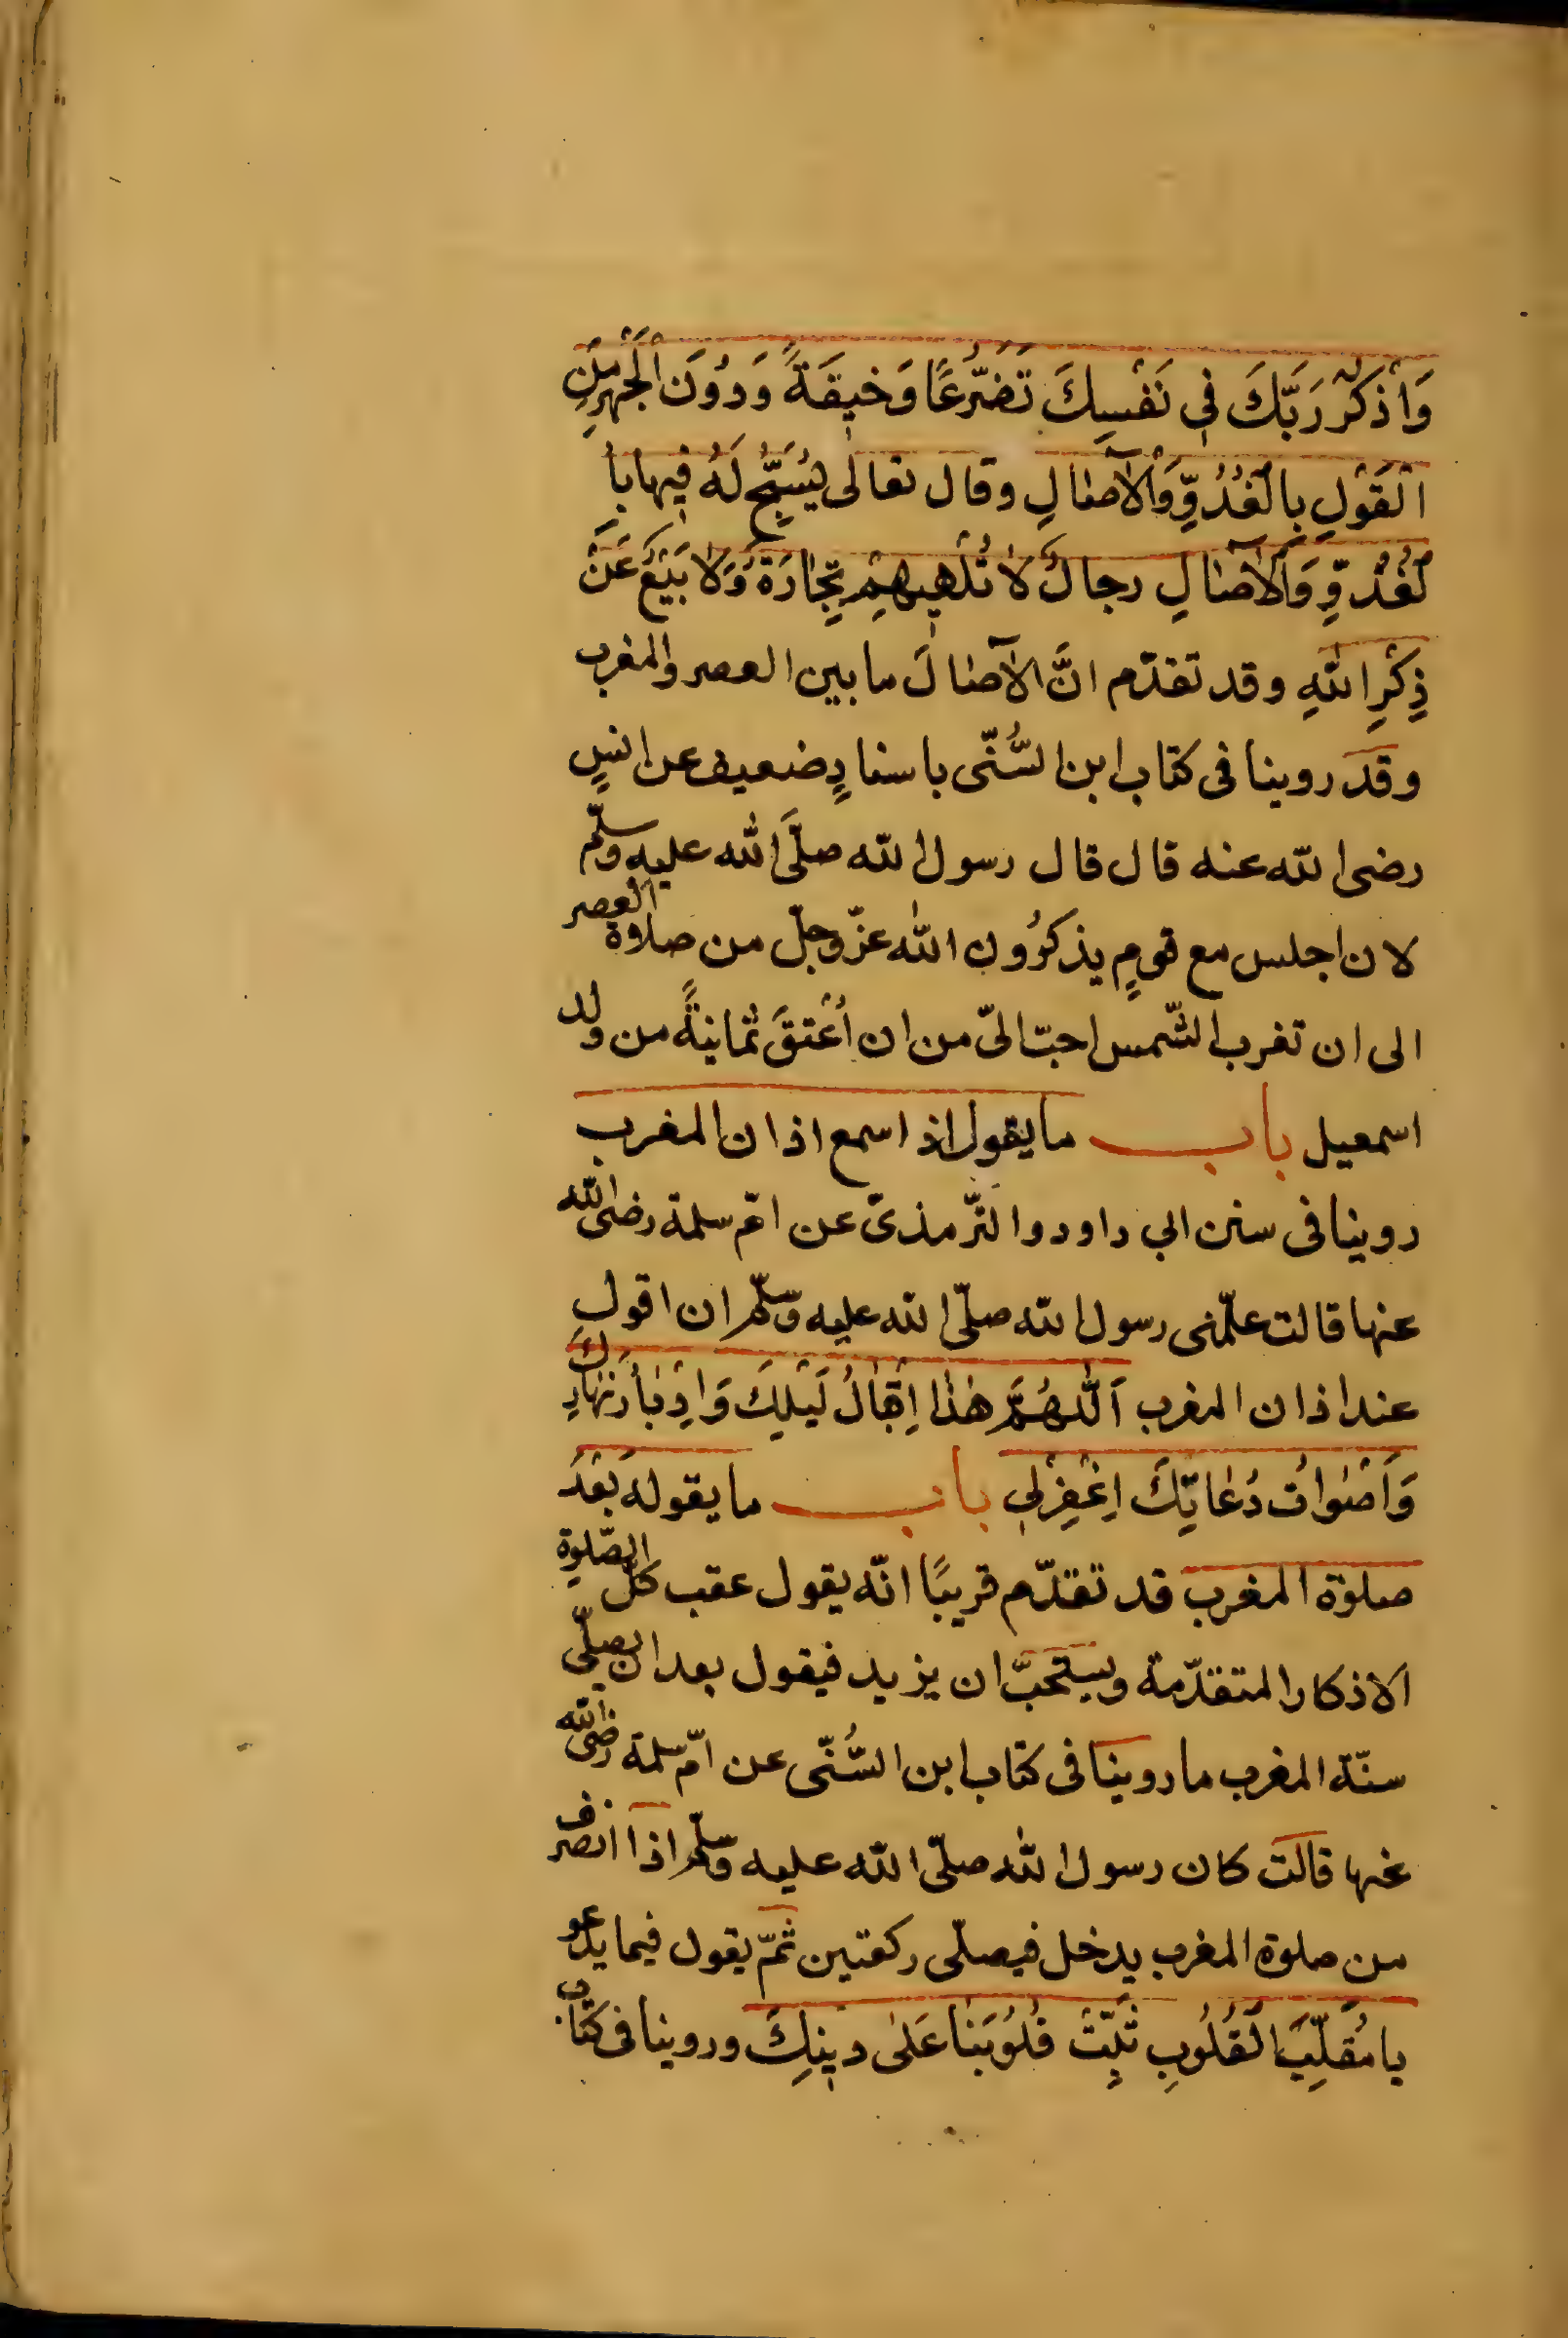 وَاذْكُرْ رَبَّكَ فِى نَفْسِكَ تَضَرُّعًا وَخِيفَةً وَدُونَ الْجَهْرِ مِنَ
الْقَوْلِ بِالْغُدُوِّ وَالْآصَالِ وقال تعالى يُسَبِّحُ لَهُ فِيهَا بِا
لْغُدُوِّ وَالْآصَالِ رجالٌ لَا تُلْهِيهِمْ تِجَارَةٌ وَلَا بَيْعٌ عَنْ
ذِكْرِ اللّٰهِ وقد تقدّم انَّ الآصَالَ ما بين العصر والمغرب
وقد روينا فى كتاب ابن السُّنّى باسنادٍ ضعيف عن انسٍ
رضى الله عنه قال قال رسول الله صلّى الله عليه وسلّم
لان اجلس مع قومٍ يذكرُون الله عزّ وجلّ من صلاوة العصر
الى ان تغرب الشّمس احبّ الىّ من ان أُعْتقَ ثمانيةً من ولد
اسمعيل باب ما يقول اذا سمع اذان المغرب
روينا فى سنن ابى داود والتّرمذىّ عن امّ سلمة رضى الله
عنها قالت علّمنى رسول الله صلّى الله عليه وسلّم ان اقول
عند اذان المغرب اَللّٰهُمَّ هٰذَا اِقْبَالُ لَيْلِكَ وَاِدْبَارُ نَهَارِكَ
وَاَصْوَاتُ دُعَاتِكَ اِغْفِرْلِى باب ما يقوله بَعْدَ
صلوة المغرب قد تقدّم قريبًا انّه يقول عقب كلّ الصّلوة
الاذكار المتقدّمة ويستحبّ ان يزيد فيقول بعد ان يصلّى
سنّة المغرب ما روينا فى كتاب ابن السُّنّى عن امّ سلمة رضى الله
عنها قالت كان رسول الله صلّى الله عليه وسلّم اذا انصرف
من صلوة المغرب يدخل فيصلّى ركعتين ثمّ يقول فيما يدعو
يا مُقَلِّبَ الْقُلُوبِ ثَبِّتْ قُلُوبَنَا عَلٰى دِينِكَ وروينا فى كتاب